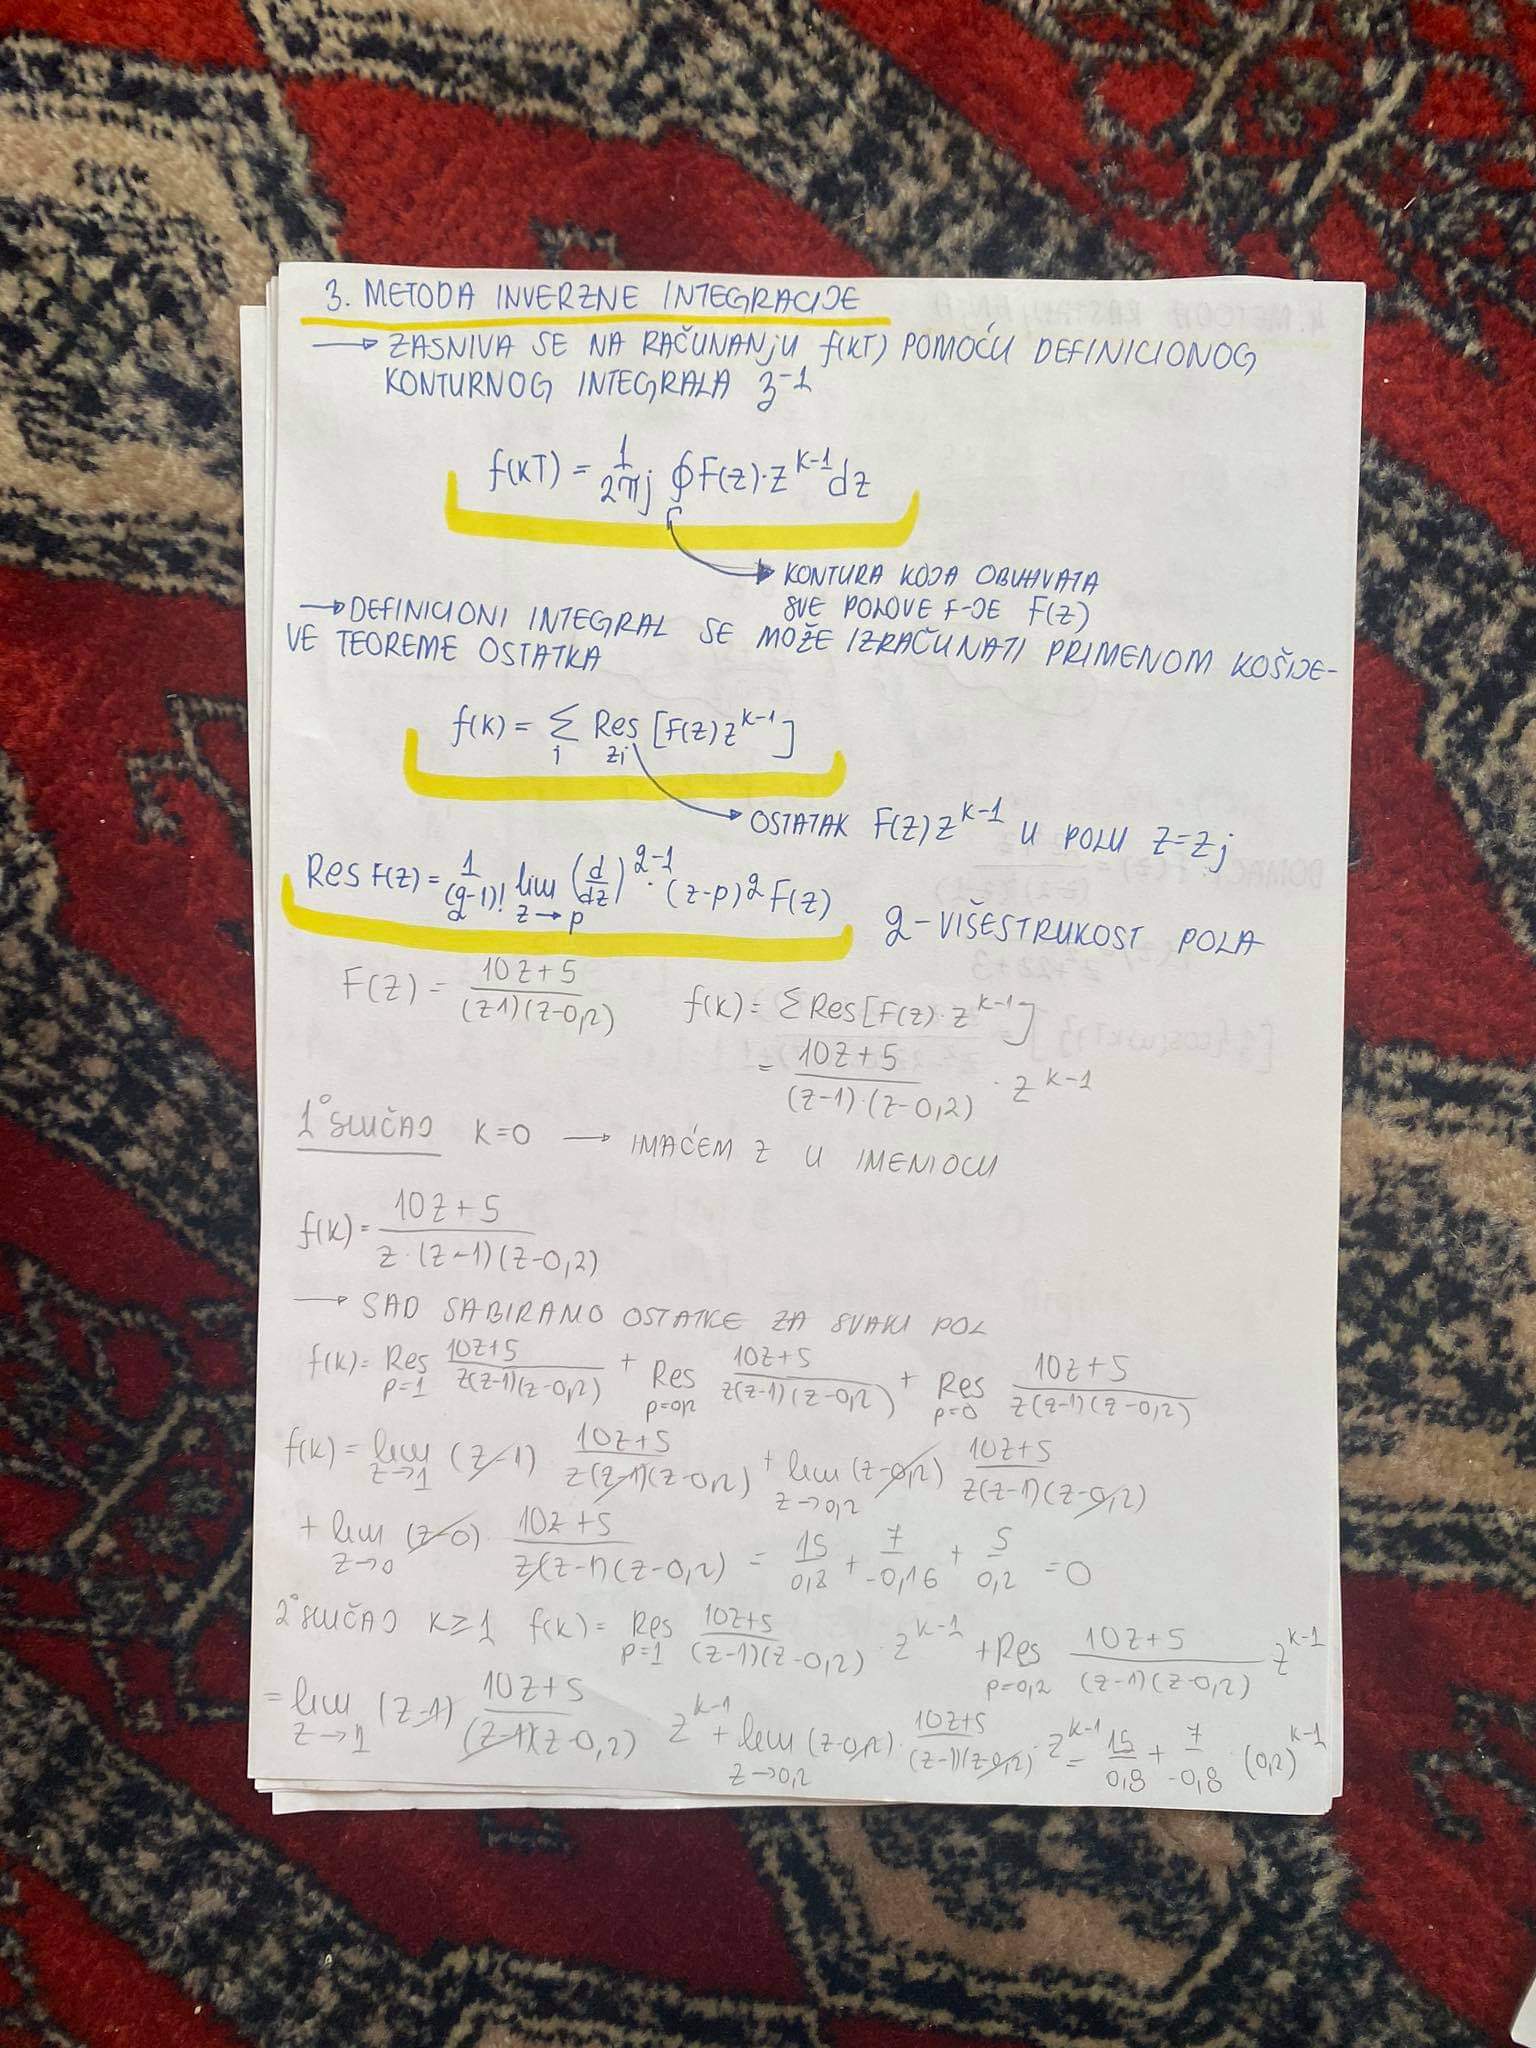 3. METODA INVERZNE INTEGRACIJE
→ ZASNIVA SE NA RAČUNANJU f(kT) POMOĆU DEFINICIONOG
KONTURNOG INTEGRALA z^-1
f(kT) = 1/(2πj) ∮ F(z)·z^(k-1) dz
→ KONTURA KOJA OBUHVATA
SVE POLOVE F-JE F(z)
→ DEFINICIONI INTEGRAL SE MOŽE IZRAČUNATI PRIMENOM KOŠIJE-
VE TEOREME OSTATKA
f(k) = Σ_j Res_zj [F(z) z^(k-1)]
→ OSTATAK F(z) z^(k-1) U POLU z=zj
Res F(z) = 1/(q-1)! lim_(z→p) (d/dz)^(q-1) · (z-p)^q F(z)
q-VIŠESTRUKOST POLA
F(z) = (10z+5)/((z1)(z-0,2)) f(k) = Σ Res [F(z)·z^(k-1)]
= (10z+5)/((z-1)·(z-0,2)) · z^(k-1)
1° SLUČAJ k=0 → IMAĆEM z U IMENIOCU
f(k) = (10z+5)/(z·(z-1)(z-0,2))
→ SAD SABIRAMO OSTATKE ZA SVAKI POL
f(k) = Res_(p=1) (10z+5)/(z(z-1)(z-0,2)) + Res_(p=0,2) (10z+5)/(z(z-1)(z-0,2)) + Res_(p=0) (10z+5)/(z(z-1)(z-0,2))
f(k) = lim_(z→1) (z-1) (10z+5)/(z(z-1)(z-0,2)) + lim_(z→0,2) (z-0,2) (10z+5)/(z(z-1)(z-0,2))
+ lim_(z→0) (z-0) · (10z+5)/(z(z-1)(z-0,2)) = 15/0,8 + 7/-0,16 + 5/0,2 = 0
2° SLUČAJ k≥1 f(k) = Res_(p=1) (10z+5)/((z-1)(z-0,2)) · z^(k-1) + Res_(p=0,2) (10z+5)/((z-1)(z-0,2)) z^(k-1)
= lim_(z→1) (z-1) (10z+5)/((z-1)(z-0,2)) z^(k-1) + lim_(z→0,2) (z-0,2) · (10z+5)/((z-1)(z-0,2)) · z^(k-1) = 15/0,8 + 7/-0,8 · (0,2)^(k-1)